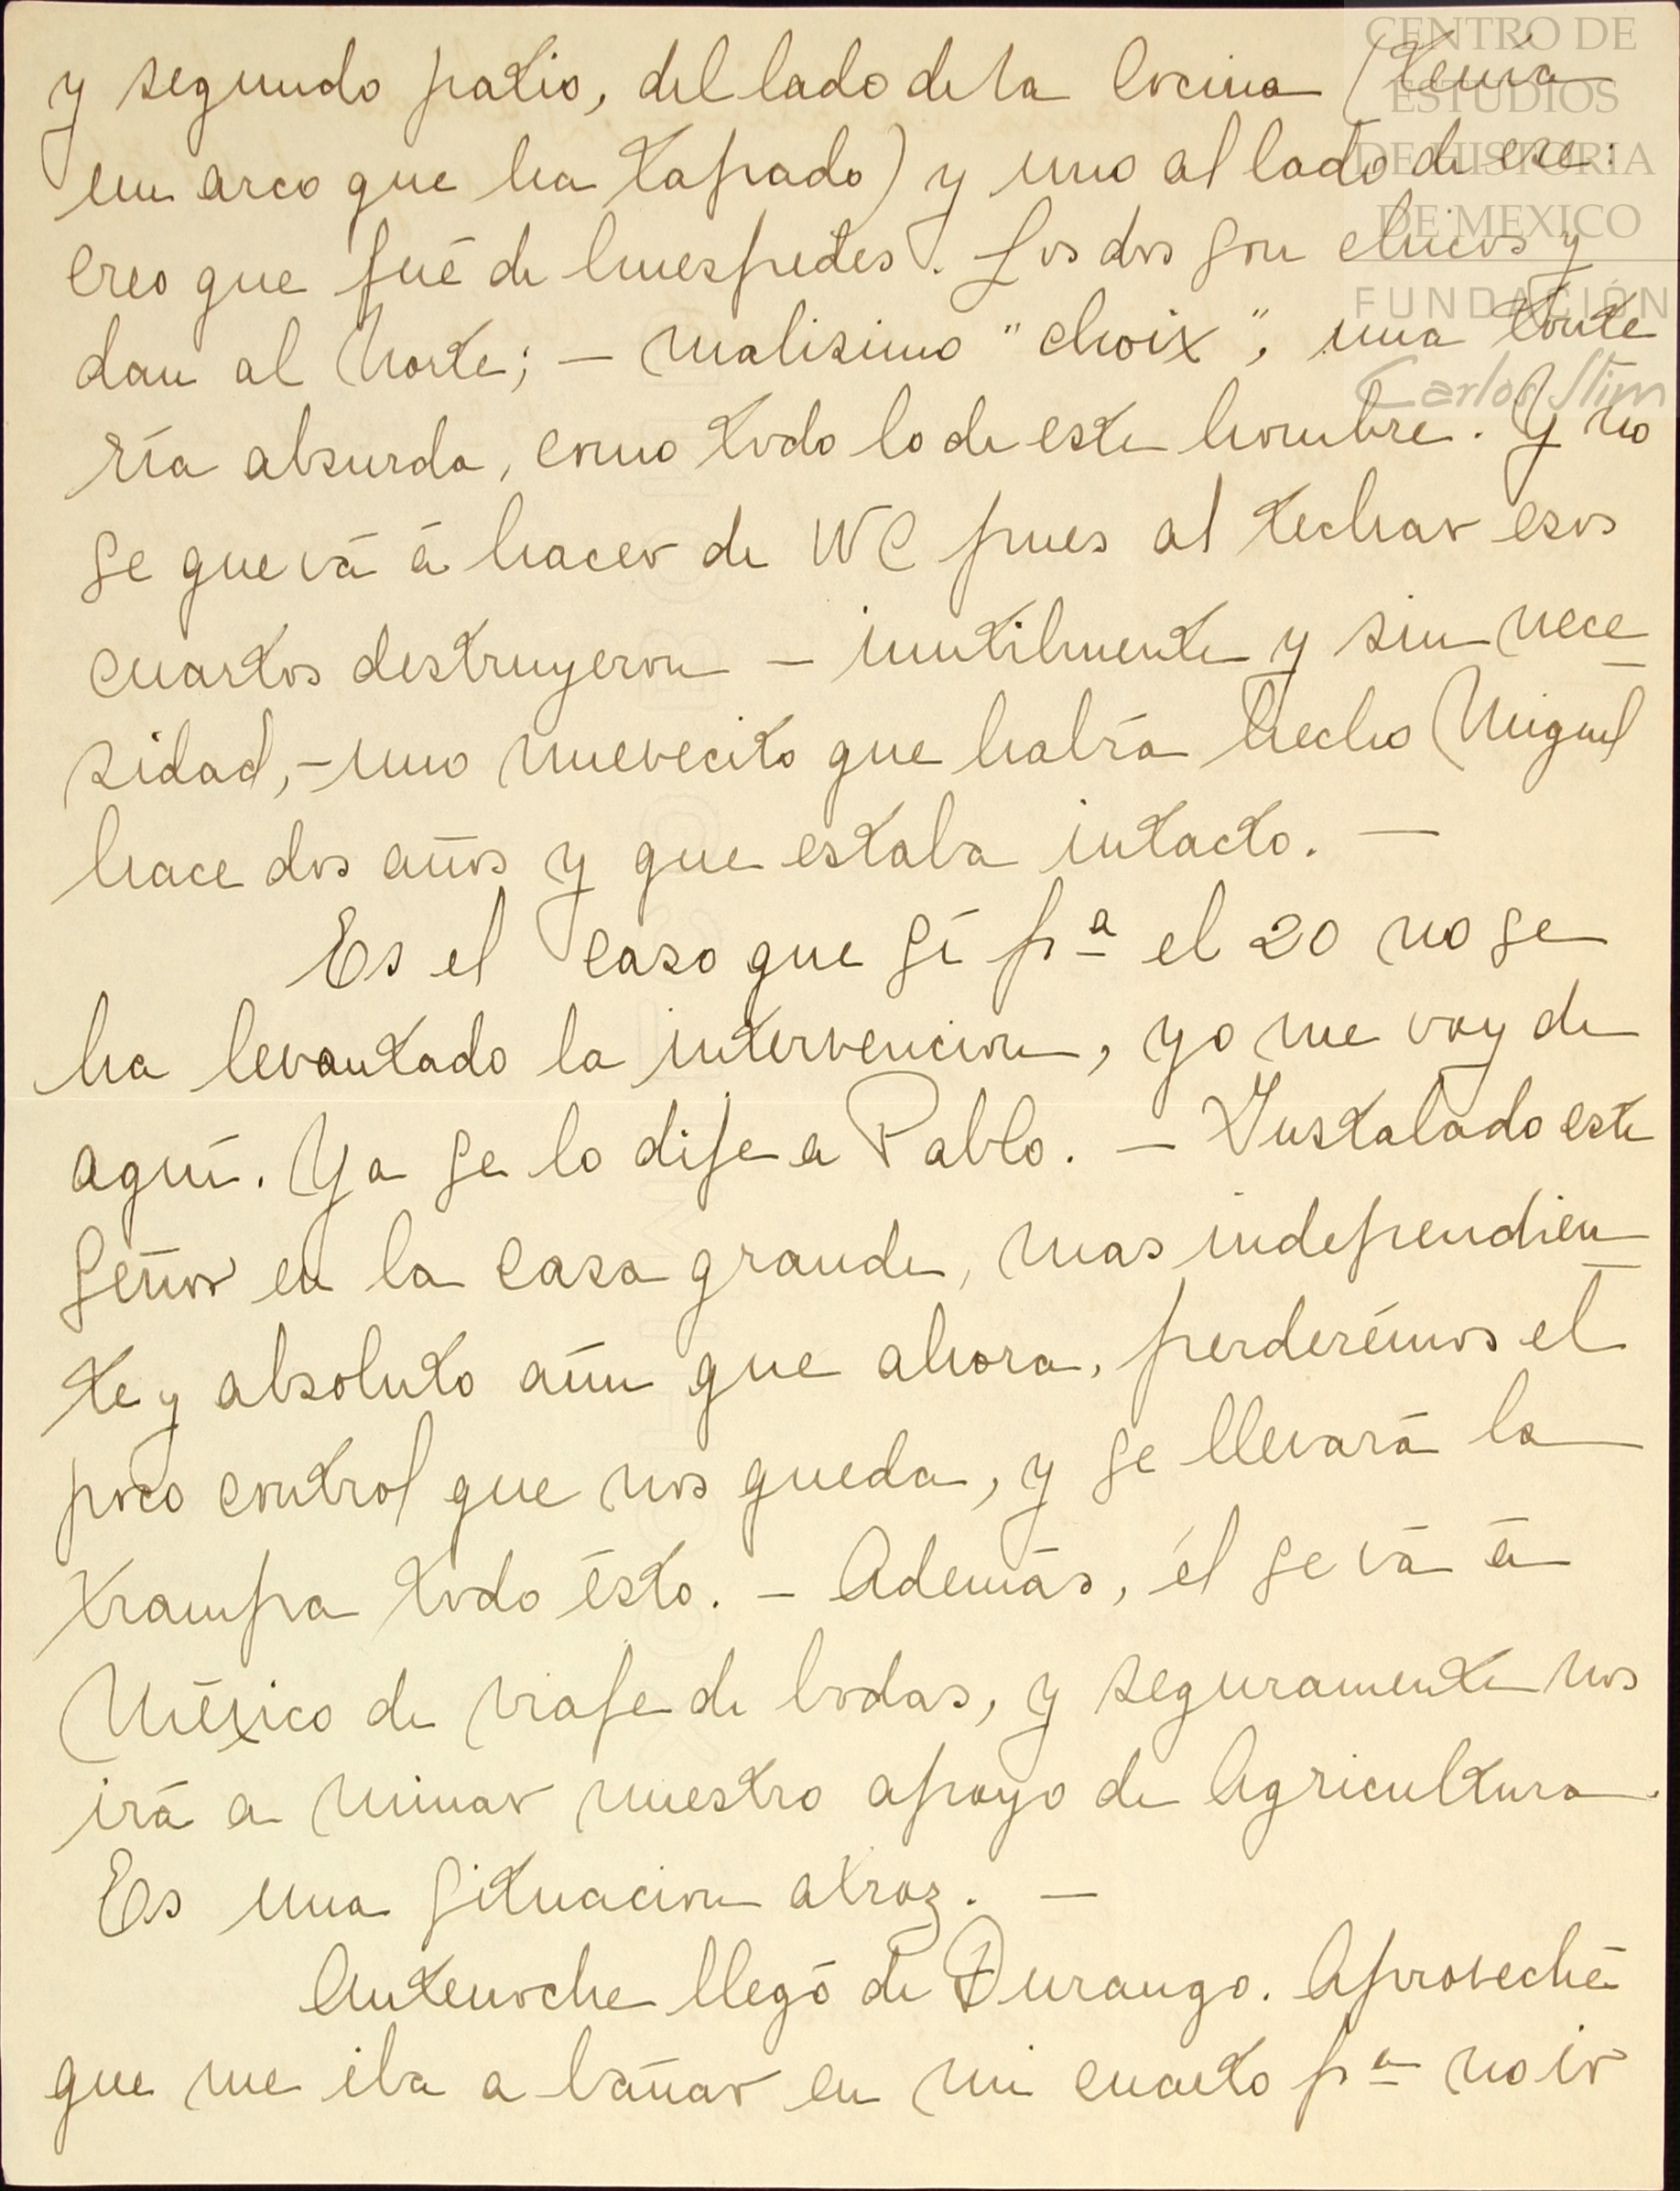 CENTRO DE
ESTUDIOS
DE HISTORIA
DE MEXICO
FUNDACIÓN
Carlos Slim
y segundo patio, del lado de la cocina (tenía
un arco que ha tapado) y uno al lado de ese:
creo que fué de huespedes. Los dos son chicos y
dan al Norte; — malisimo "choix", una tonte
ría absurda, como todo lo de este hombre. Y no
se que vá á hacer de WC pues al techar esos
cuartos destruyeron — inutilmente y sin nece
sidad, — uno nuevecito que había hecho Miguel
hace dos años y que estaba intacto. —
Es el caso que si pª el 20 no se
ha levantado la intervencion, yo me voy de
aquí. Ya se lo dije a Pablo. — Instalado este
Señor en la casa grande, mas independien
te y absoluto aún que ahora, perderémos el
poco control que nos queda, y se llevará la
trampa todo ésto. — Además, él se vá á
México de viaje de bodas, y seguramente nos
irá a minar nuestro apoyo de Agricultura.
Es una situacion atroz. —
Antenoche llegó de Durango. Aproveché
que me iba a bañar en mi cuarto pª no ir